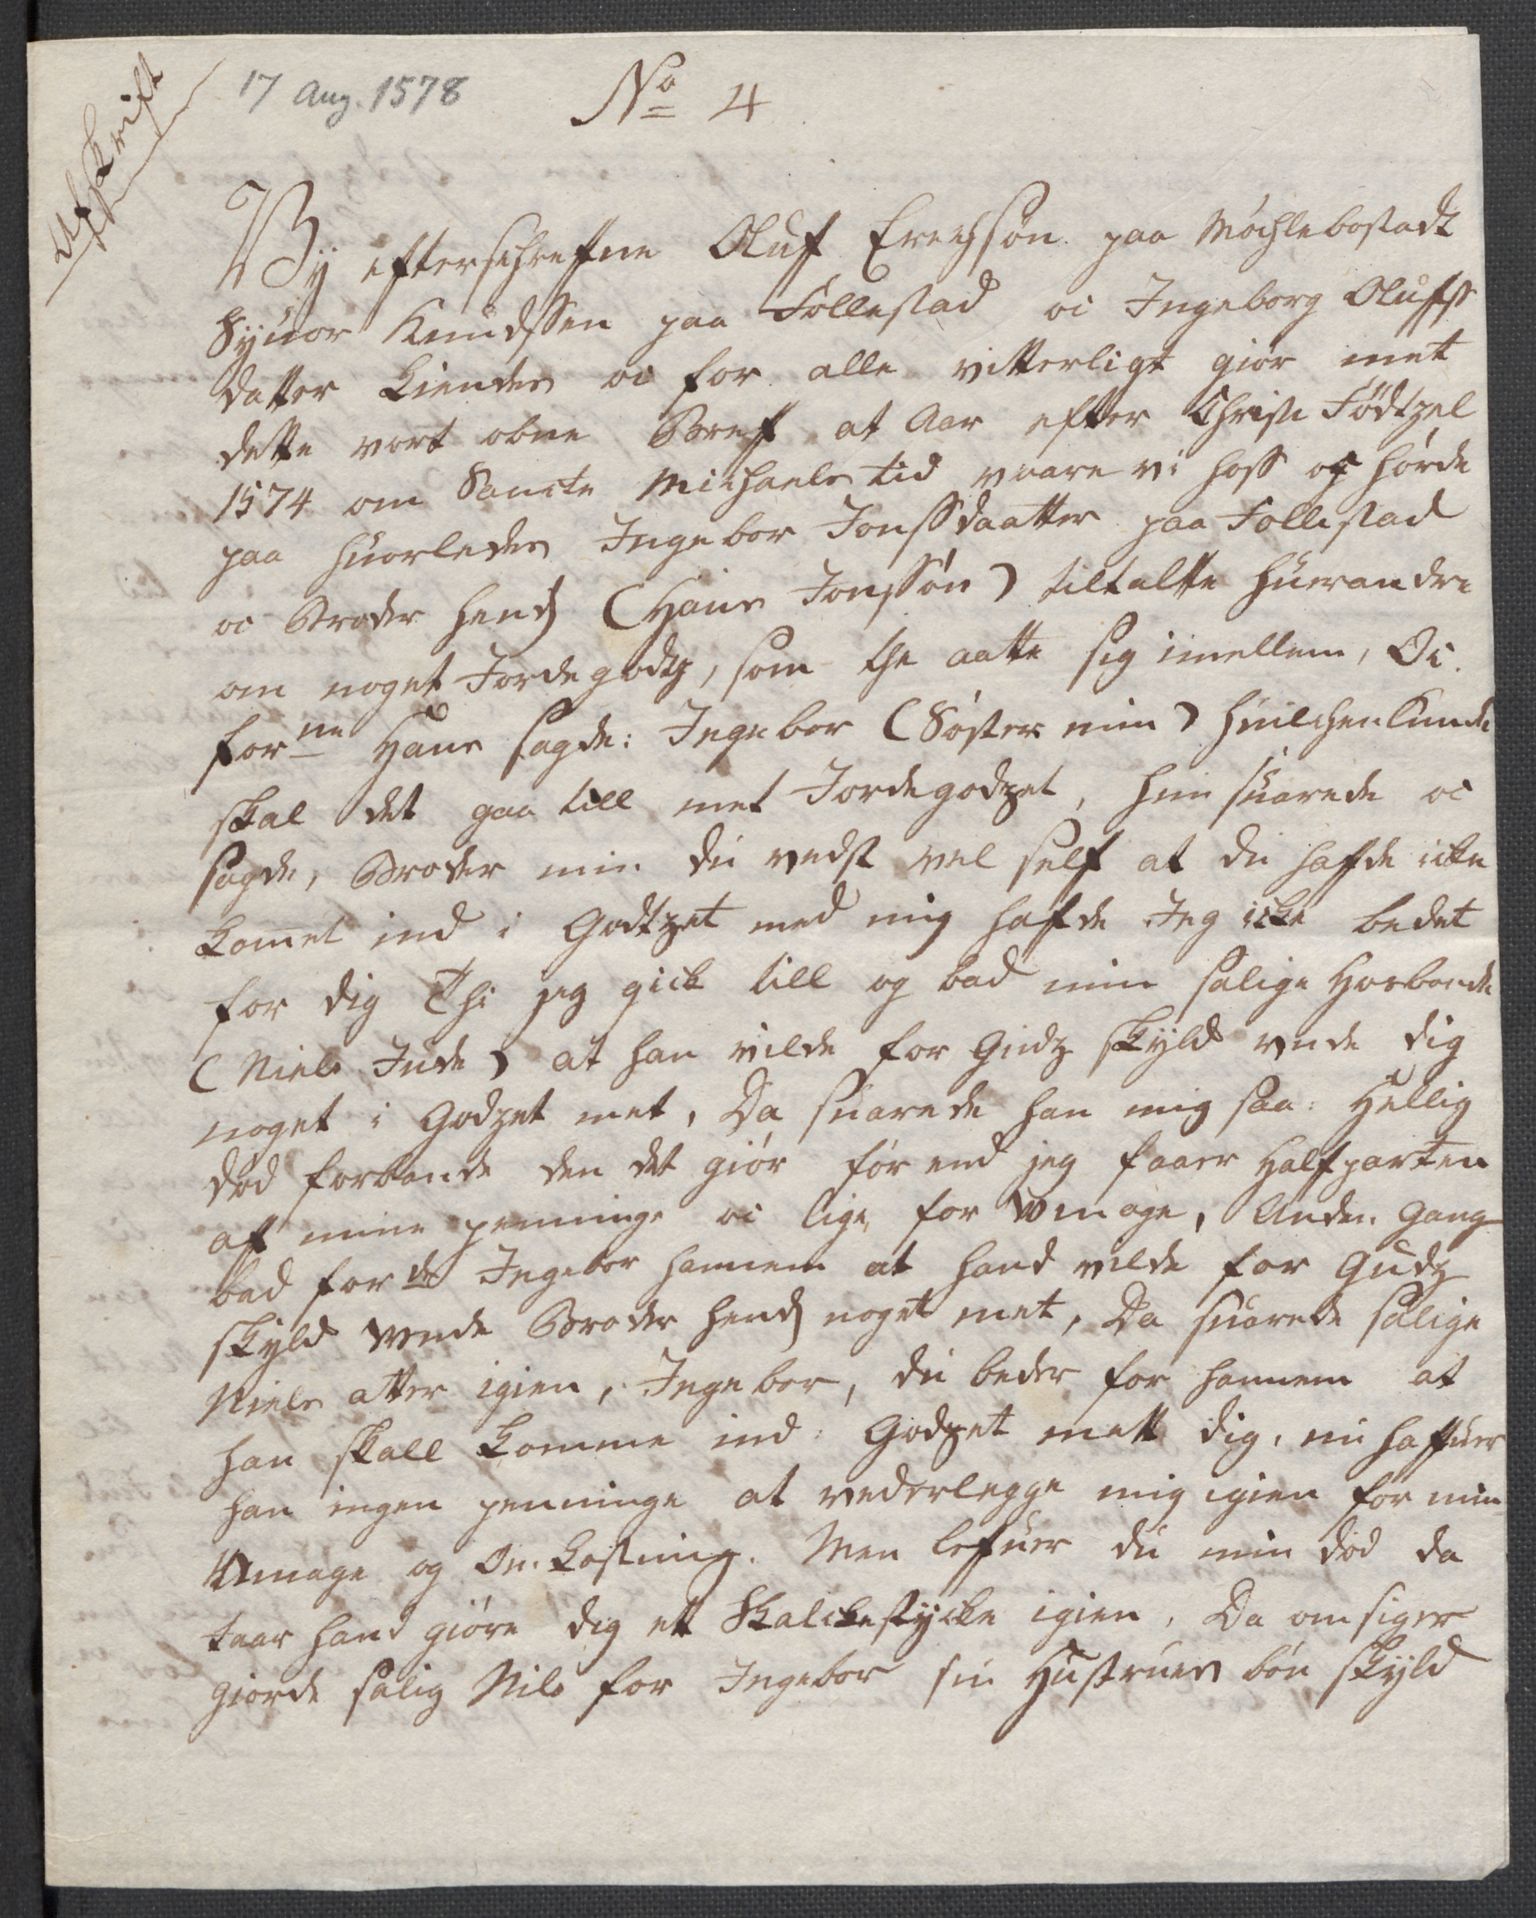 Afskrift
17 Aug. 1578
No 4
Wy efterschrefne Oluf Erechsøn paa Møchlebostadt
Syuor Knudssen paa Føllestad oc Ingeborg Olufs
datter kiendes oc for alle vitterligt giør met
dette vort obne Breff at Aar efter Christi Fødtzel
1574 om Sancte Michaels tid vaare vi hoss og hørde
paa huorledes Ingebor Jonssdaatter paa Follestad
oc Broder hends (Hans Jonssøn) tiltalte huerandre
om noget Jordegodtz, som the aatte sig imellem, Oc
forne Hans sagde: Ingebor (Søster min) huilchenlunde
skal det gaa till met Jordegodzet, hun suarede oc
sagde, Broder min du vedst vel self at du hafde icke
komet ind i Godtzet med mig hafde Jeg icke bedet
for dig Thi jeg gick till og bad min salige Hosbonde
(Niels Jude) at han vilde for Gudz skyld vnde dig
noget i Godzet met, Da suarede han mig saa: Hellig
død forbande den det giør før end jeg faaer Halfparten
af mine penninge oc lige for Vmage, Anden Gang
bad forde Ingebor hannem at hand vilde for Gudz
skyld vnde Broder hends noget met, Da suarede salige
Niels atter igien, Ingebor, du beder for hannem at
han skall komme ind i Godzet mett dig, nu haffuer
han ingen penninge at vederlegge mig igien for min
Umage og Om kostning. Men lefuer du min død da
taar hand giøre dig ett Skalckestycke igien, Da omsiger
giorde salig Nils for Ingebor sin Hustrues bøn skyld